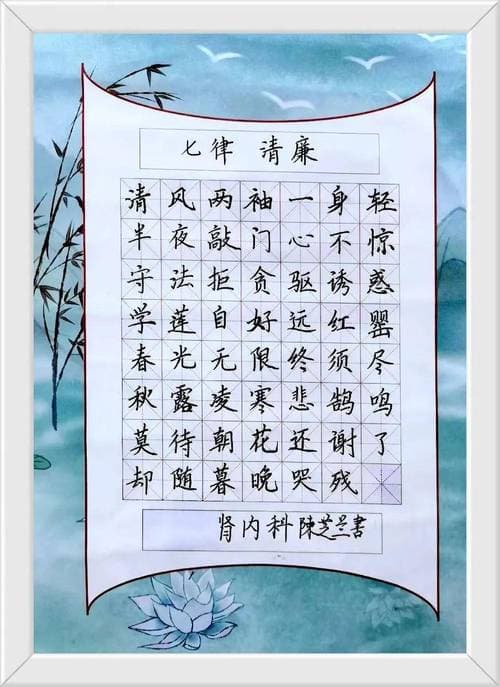 七律 清廉
清风两袖一身轻
半夜敲门心不惊
守法拒贪驱诱惑
学莲自好远红罂
春光无限终须尽
秋露凌寒悲鹄鸣
莫待朝花还谢了
却随暮晚哭残
肾内科陳芝兰書